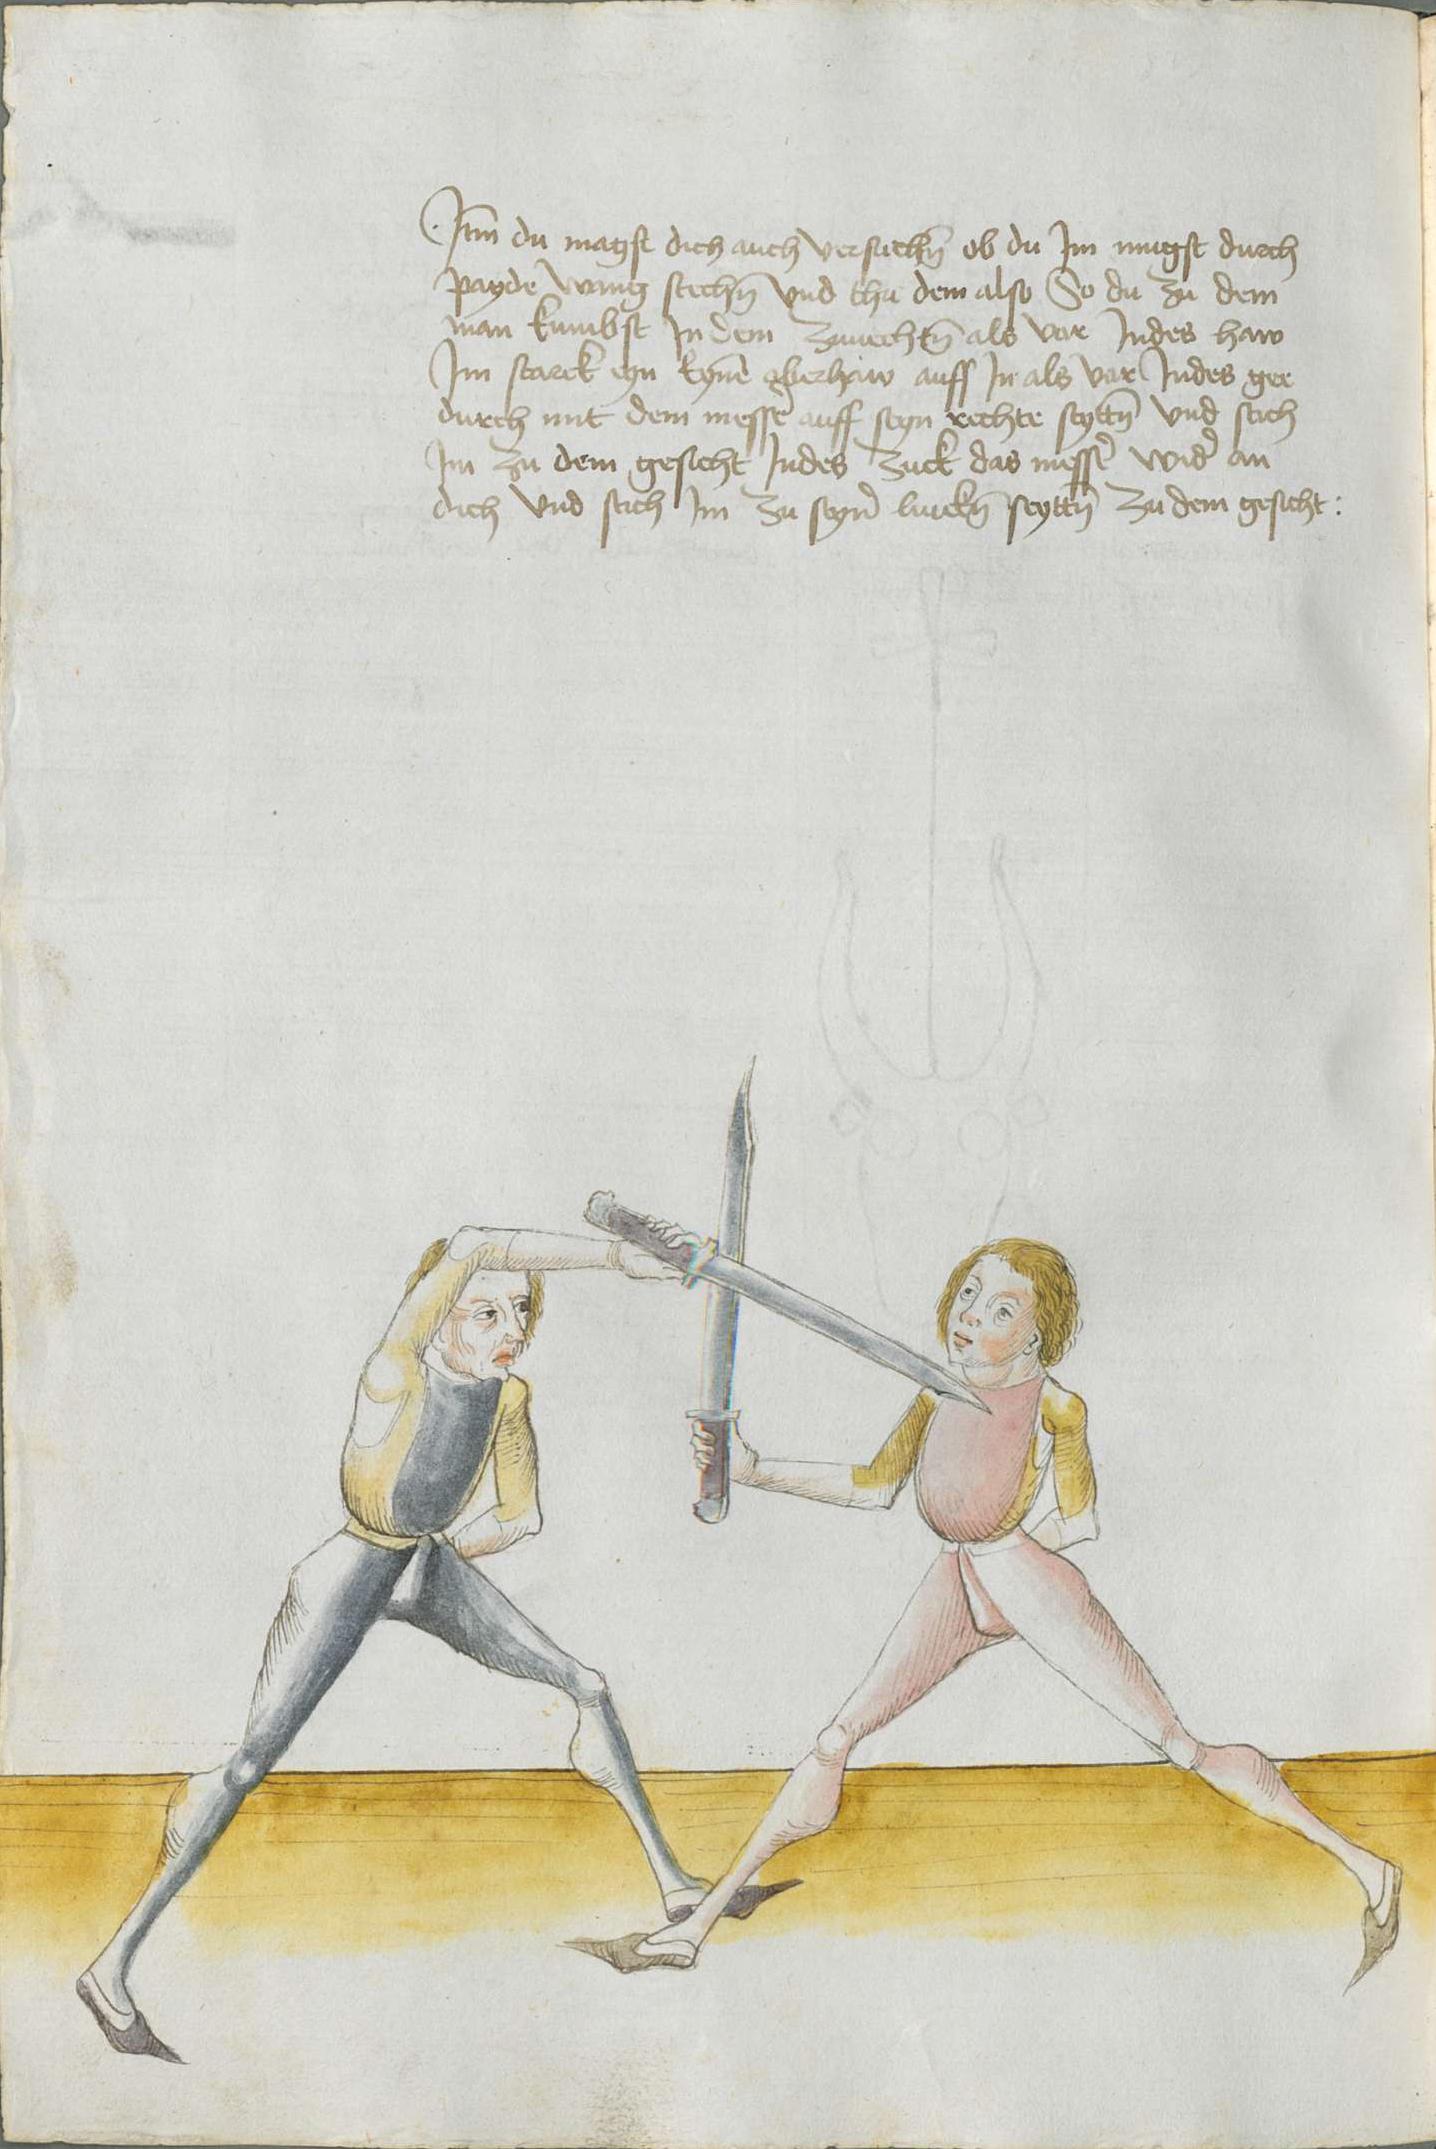 Itm du magst dich auch versuchn̄ ob du Im mugst durch
payde wang stechn̄ vnd thu dem also So du zu dem
man kumbst In dem zuuechtn̄ als vor Indes haw
Im starck eyn kyne᷑ oberhaw auff In als vor Indes gee
durch mit dem messe᷑ auff seyn rechte seyttn̄ vnd stich
Im zu dem gesicht Indes zuck das messe᷑ wid᷑ an
dich vnd stich Im zu seyne᷑ linckn̄ seyttn̄ zu dem gesicht :